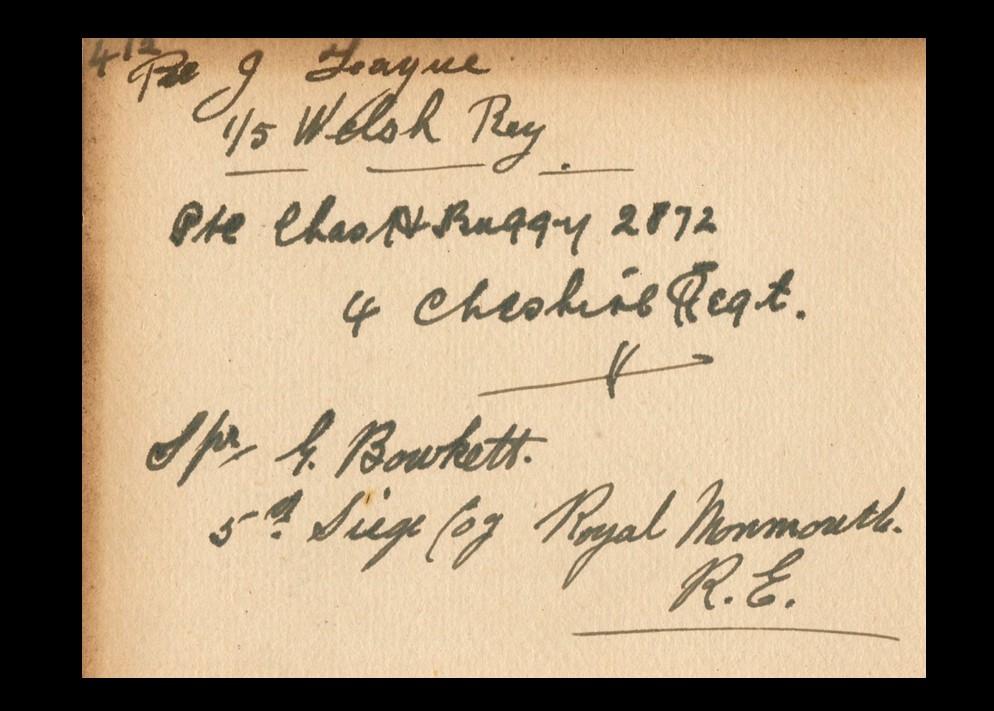 412
Pte J Teague
1/5 Welsh Reg.
Pte Chas H Ruggy 2872
4 Cheshire Regt.
Spr. G. Bowkett.
5th Siege Coy Royal Monmouth.
R.E.